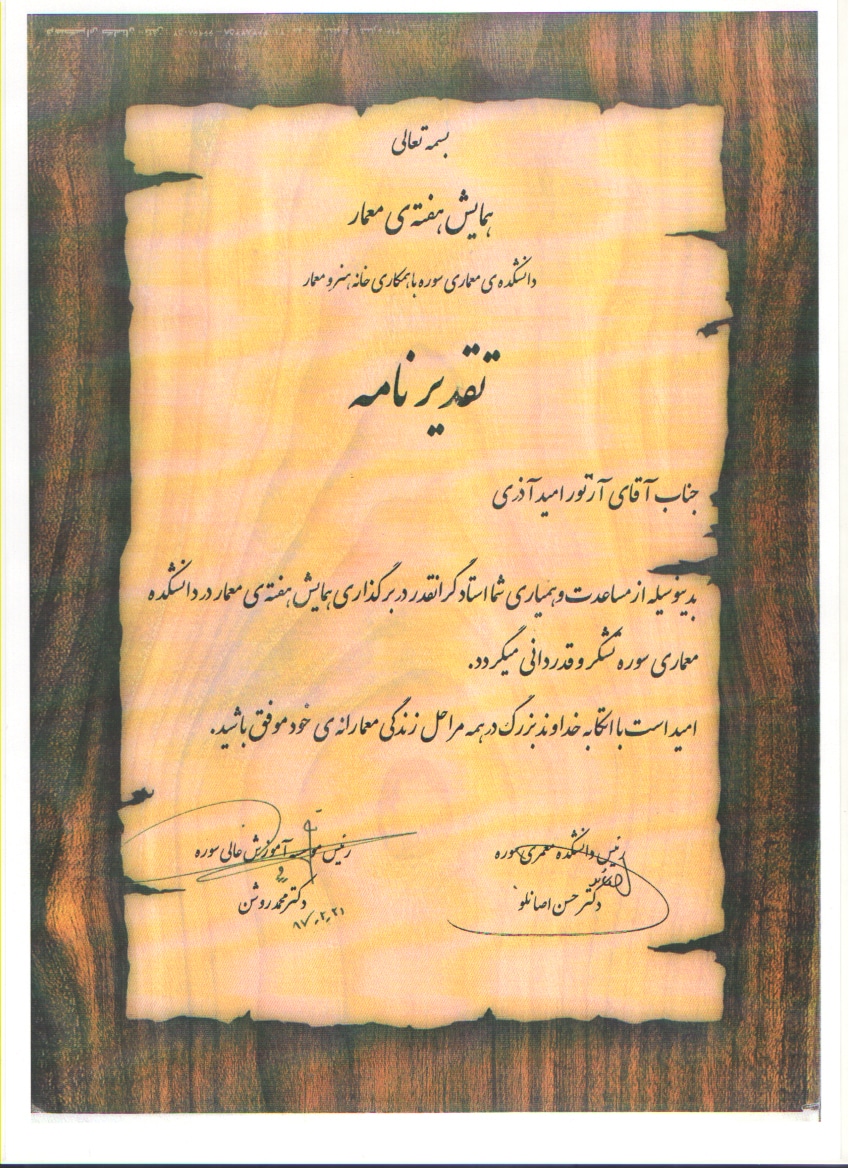 بسمه تعالی
همایش هفته‌ی معمار
دانشکده‌ی معماری سوره با همکاری خانه هنر و معمار
تقدیر نامه
جناب آقای آرتور امید آذری
بدینوسیله از مساعدت و همیاری شما استاد گرانقدر در برگذاری همایش هفته‌ی معمار در دانشکده
معماری سوره تشکر و قدردانی میگردد.
امید است با اتکا به خداوند بزرگ در همه مراحل زندگی معمارانه‌ی خود موفق باشید.
رئیس دانشکده معمری سوره
دکتر حسن اصانلو
رئیس موسسه آموزش عالی سوره
دکتر محمد روشن
۸۷.۲.۲۱